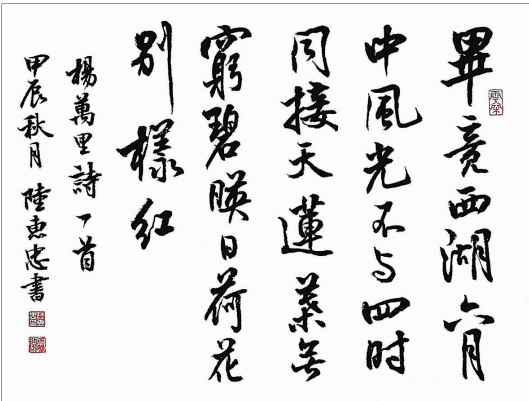 畢竟西湖六月
中風光不与四时
同接天蓮葉无
窮碧映日荷花
别樣红
楊萬里詩一首
甲辰秋月 陸惠忠書